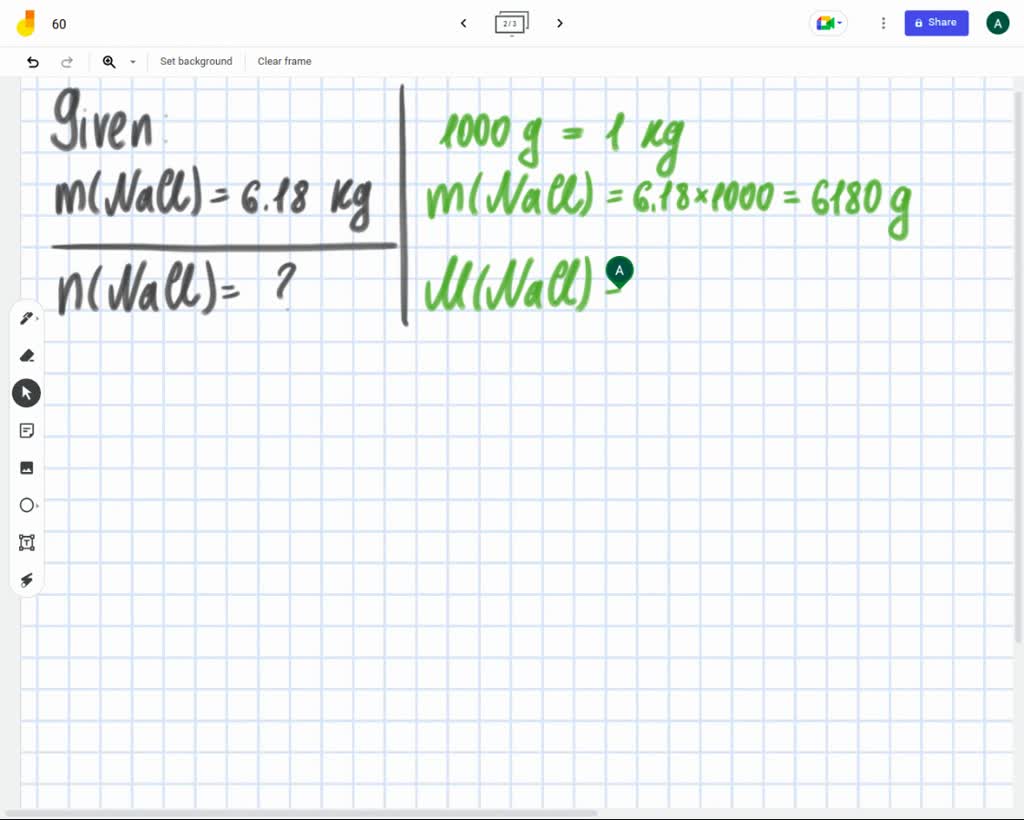 60
2/3
Share
A
Set background
Clear frame
Given:
m(NaCl) = 6.18 kg
n(NaCl) = ?
1000 g = 1 kg
m(NaCl) = 6.18×1000 = 6180 g
M(NaCl) =
A
T